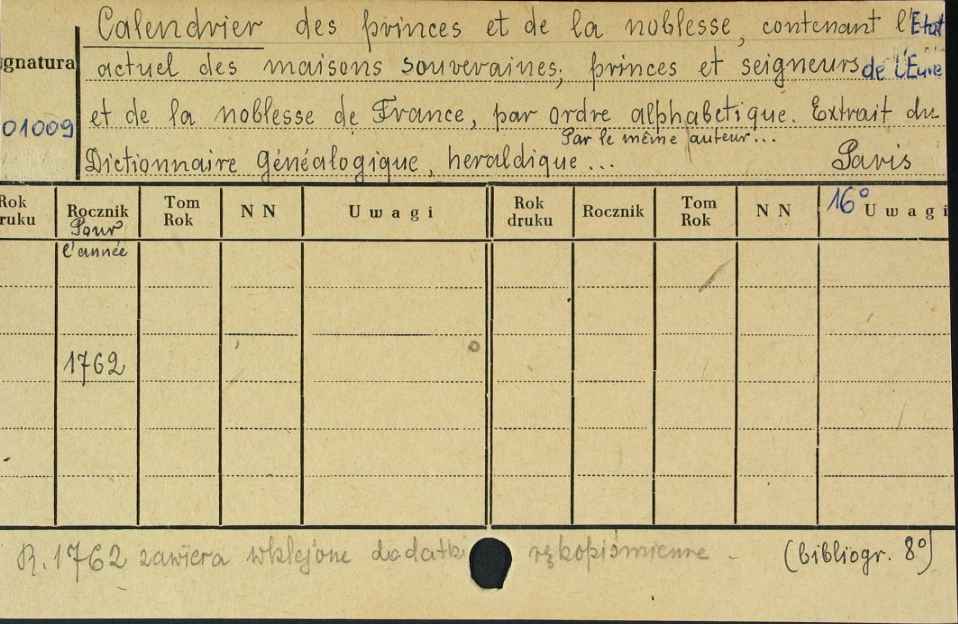 Calendrier des princes et de la noblesse, contenant l'Etat
gnatura
actuel des maisons souveraines, princes et seigneurs de l'Euro
01009
et de la noblesse de France, par ordre alphabetique. Extrait du
Par le même auteur...
Dictionnaire généalogique, heraldique... Paris
Rok ruku Rocznik Tom Rok N N Uwagi Rok druku Rocznik Tom Rok N N 16° Uwagi
Pour
l'année
1762
R. 1762 zawiera wklejone dodatki rękopiśmienne. (bibliogr. 8°)